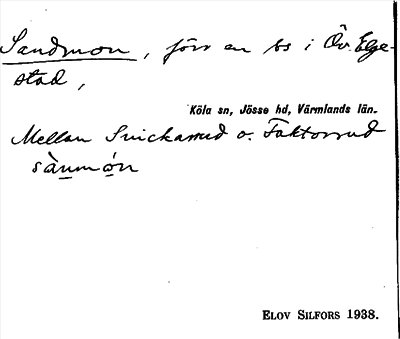 Sandmon, förr en bs i Öv. Elge-
stad,
Köla sn, Jösse hd, Värmlands län.
Mellan Snickarrud o. Faktorrud
sànmó̱n
ELOV SILFORS 1938.